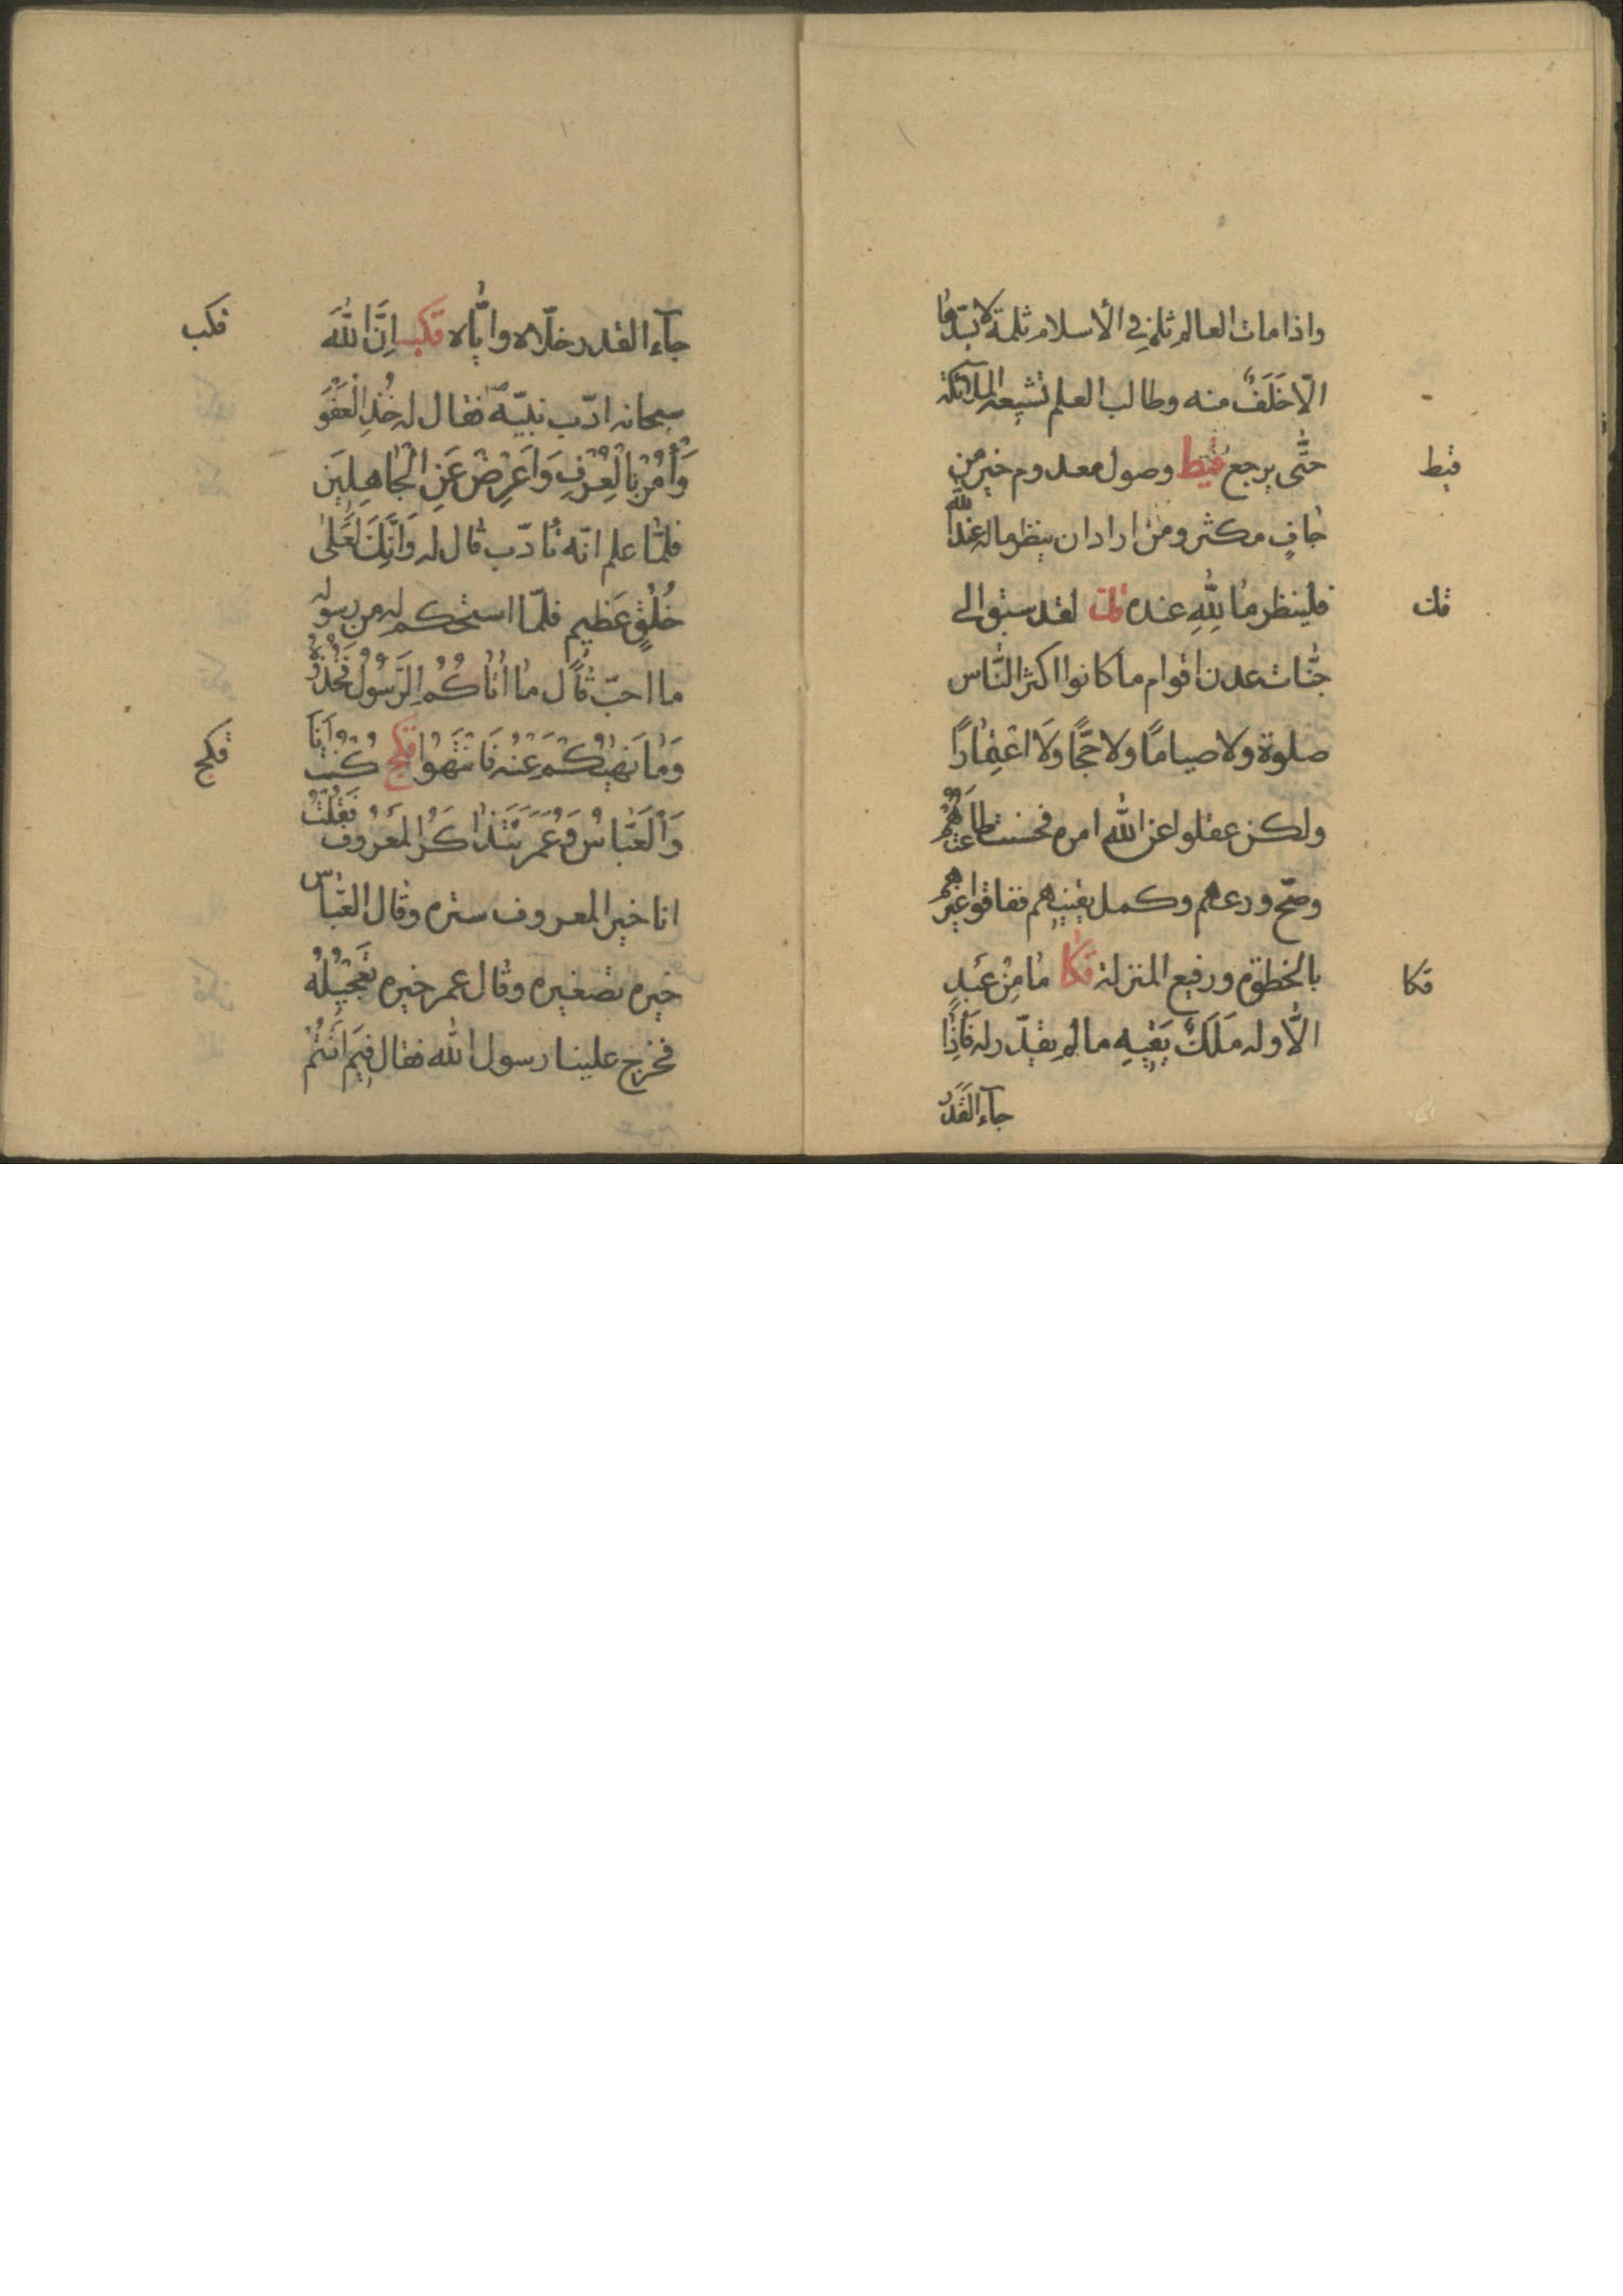 واذا مات العالم ثلم في الأسلام ثلمة لا يسدّها
الّا خَلَفٌ منه وطالب العلم تشيعه الملآئكة
حتّى يرجع قيط وصول معدوم خير من
قيط
جافٍ مكثر ومن اراد ان ينظر ما له عند الله
فلينظر ما لِلّٰهِ عنده قك لقد سبق الى
قك
جنّات عدن اقوام ما كانوا اكثر النّاس
صلوة ولا صيامًا ولا حجًّا وَلَا اعْتِمٰارًا
ولكن عقلوا عن الله امره فحسنت طاعَتُهُمْ
وصحّ ورعهم وكمل يقينهم ففاقوا غيرهم
بالخطوة ورفيع المنزلة قكا مٰا مِنْ عَبْدٍ
قكا
الّا وله مَلَكٌ يَقيهِ ما لم يقدّر له فَأِذٰا
جآء القَدَرُ
جآء القدر خلّاه وايّاه قكب اِنَّ اللهَ
قكب
سبحانه ادّب نبيّه فقال له خُذِ الْعَفْوَ
وَأْمُرْ بِالْعُرْفِ وَاَعْرِضْ عَنِ الْجٰاهِلِيَن
فلمّا علم انّه تأدّب قال له وَاِنَّكَ لَعَلٰى
خُلُقٍ عَظيمٍ فلمّا استحكم له من رسوله
ما احبّ قال مٰا اٰتٰاكُمُ الرَّسُولُ فَخُذُوهُ
وَمٰا نَهٰيكُمْ عَنْهُ فَانْتَهُوا قكج كُنْتُ اَنَا
قكج
وَالْعَبّٰاسُ وَعُمَرُ نَتَذٰاكَرُ الْمَعْرُوفَ فَقُلْتُ
انا خير المعروف ستره وقال العبّاس
خيره تصغيره وقال عمر خيره تَعْجيلُهُ
فخرج علينا رسول الله فقال فِيمَ اَنْتُمْ